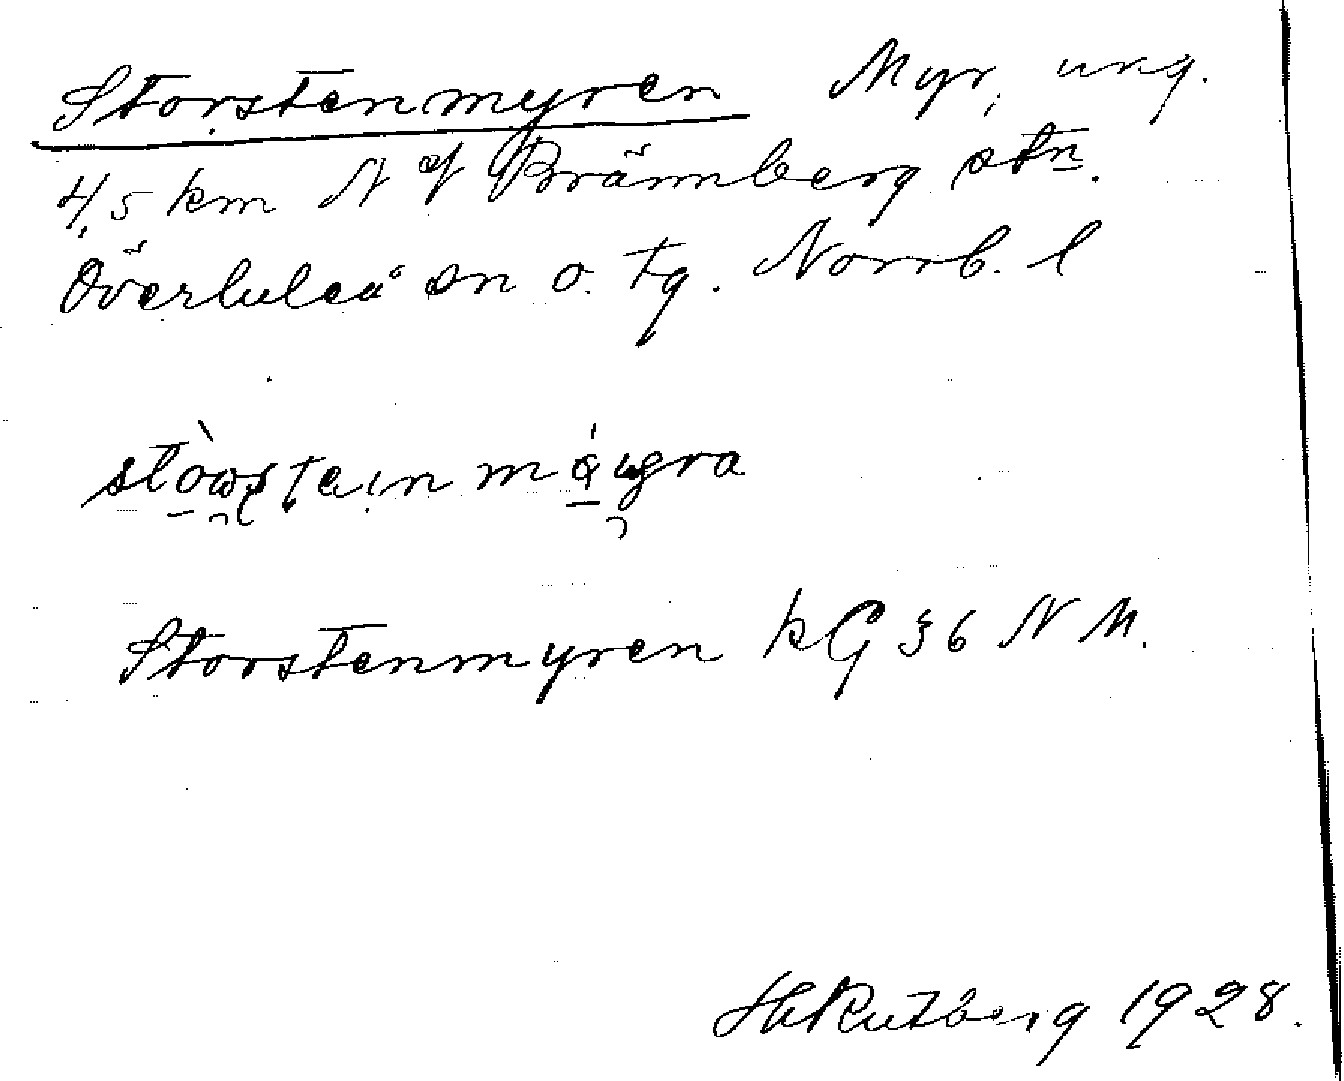 Storstenmyren Myr, ung.
4,5 km N of Brännberg stn.
Överluleå sn o. tg. Norrb. l
Storstenmyren kG 36 N M.
Rutberg 1928.